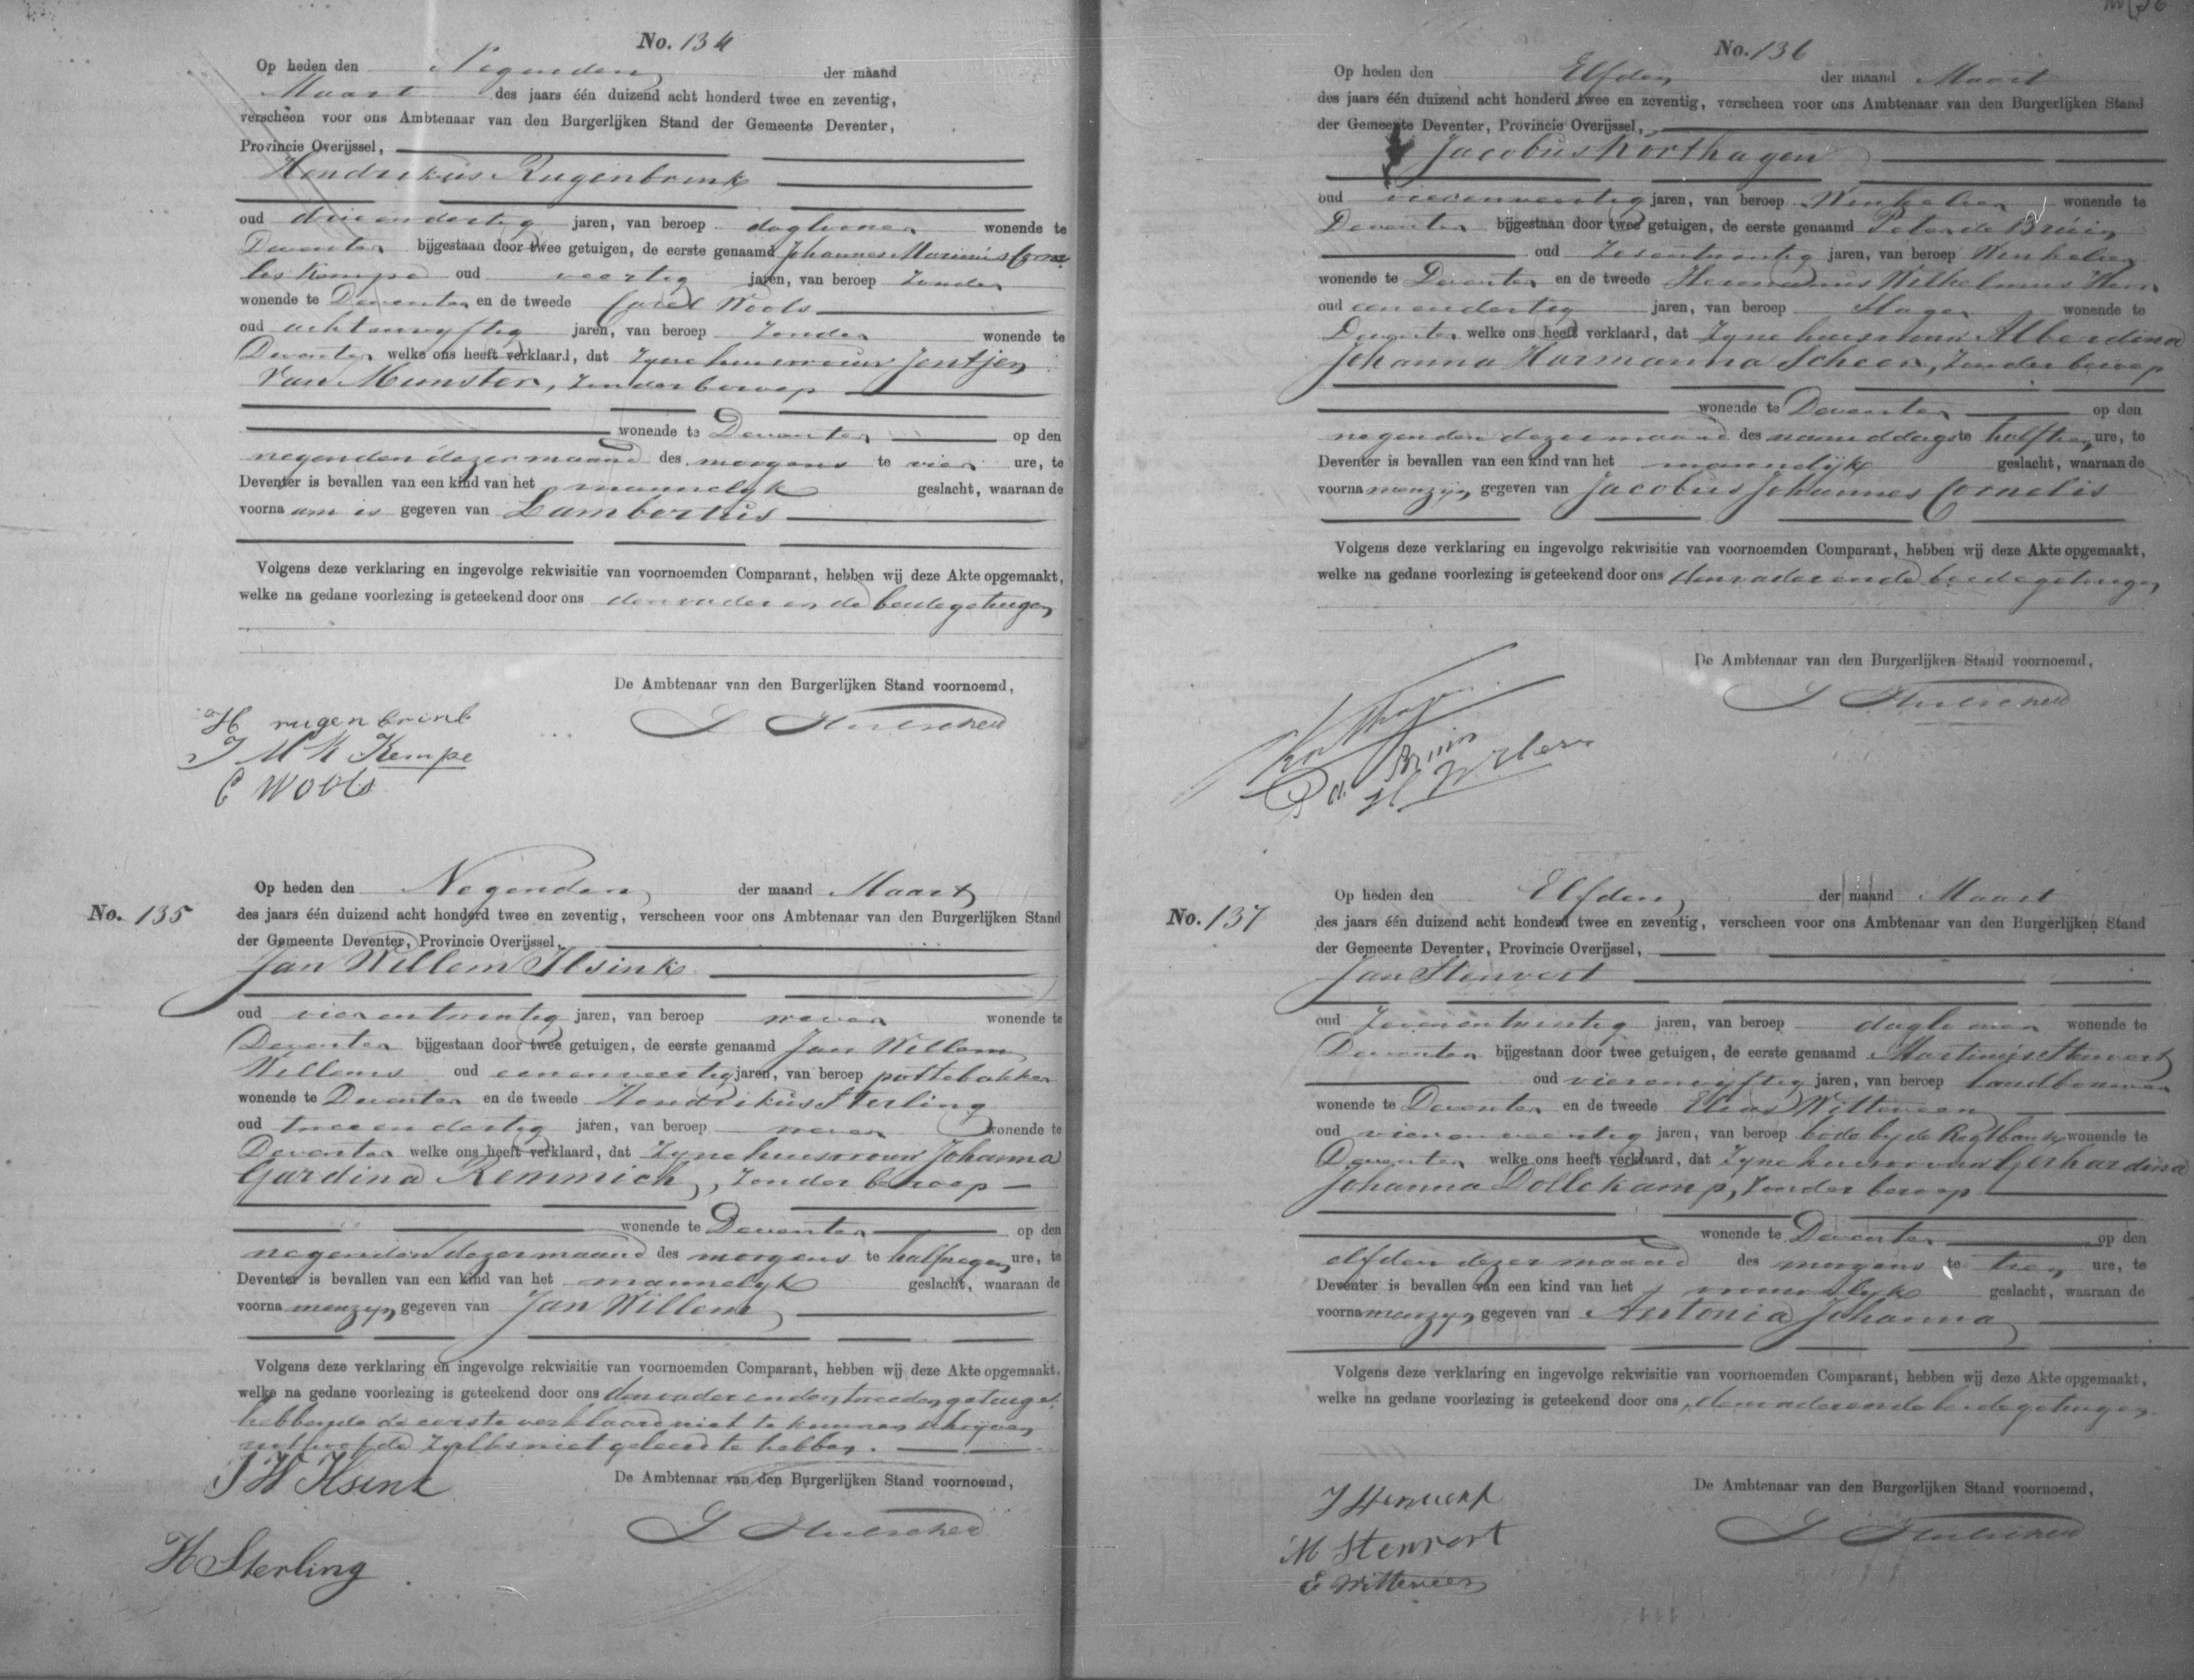 No. 134
Op heden den Negenden der maand
Maart des jaars één duizend acht honderd twee en zeventig,
verscheen voor ons Ambtenaar van den Burgerlijken Stand der Gemeente Deventer,
Provincie Overijssel,
Hendrikus Rugenbrink
oud drieendertig jaren, van beroep daglooner wonende te
Deventer bijgestaan door twee getuigen, de eerste genaamd Johannes Marinus Corne
lis Kempe oud veertig jaren, van beroep zonder
wonende te Deventer en de tweede Carel Wools
oud achtenvyftig jaren, van beroep zonder wonende te
Deventer welke ons heeft verklaard, dat zyne huisvrouw Jentjen
van Munster, zonder beroep
wonende te Deventer op den
negenden dezer maand des morgens te vier ure, te
Deventer is bevallen van een kind van het mannelyk geslacht, waaraan de
voorna am is gegeven van Lambertus
Volgens deze verklaring en ingevolge rekwisitie van voornoemden Comparant, hebben wij deze Akte opgemaakt,
welke na gedane voorlezing is geteekend door ons den vader en de beide getuigen
De Ambtenaar van den Burgerlijken Stand voornoemd,
H rugenbrink
Kempe
C Wools
No. 135
Op heden den Negenden der maand Maart
des jaars één duizend acht honderd twee en zeventig, verscheen voor ons Ambtenaar van den Burgerlijken Stand
der Gemeente Deventer, Provincie Overijssel,
Jan Willem Ilsink
oud vierentwintig jaren, van beroep wever wonende te
Deventer bijgestaan door twee getuigen, de eerste genaamd Jan Willem
Willems oud eenenveertig jaren, van beroep pottebakker
wonende te Deventer en de tweede Hendrikus Sterling
oud tweeendertig jaren, van beroep wever wonende te
Deventer welke ons heeft verklaard, dat zyne huisvrouw Johanna
Gardina Remmich, zonder beroep
wonende te Deventer op den
negenden dezer maand des morgens te half negen ure, te
Deventer is bevallen van een kind van het mannelyk geslacht, waaraan de
voorna men zyn gegeven van Jan Willem
Volgens deze verklaring en ingevolge rekwisitie van voornoemden Comparant, hebben wij deze Akte opgemaakt,
welke na gedane voorlezing is geteekend door ons den vader en den tweeden getuige,
hebbende de eerste verklaard niet te kunnen schryven
uit hoofde zulks niet geleerd te hebben.
De Ambtenaar van den Burgerlijken Stand voornoemd,
J W Ilsink
H Sterling
No. 136
Op heden den Elfden der maand Maart
des jaars één duizend acht honderd twee en zeventig, verscheen voor ons Ambtenaar van den Burgerlijken Stand
der Gemeente Deventer, Provincie Overijssel,
Jacobus Korthagen
oud vierenveertig jaren, van beroep Winkelier wonende te
Deventer bijgestaan door twee getuigen, de eerste genaamd Peter de Bruin
oud zesentwintig jaren, van beroep Winkelier
wonende te Deventer en de tweede Hermanus Wilhelmus
oud eenendertig jaren, van beroep Slager wonende te
Deventer welke ons heeft verklaard, dat zyne huisvrouw Alberdina
Johanna Harmanna Scheer, zonder beroep
wonende te Deventer op den
negenden dezer maand des namiddags te half tien ure, te
Deventer is bevallen van een kind van het mannelijk geslacht, waaraan de
voorna men zijn gegeven van Jacobus Johannes Cornelis
Volgens deze verklaring en ingevolge rekwisitie van voornoemden Comparant, hebben wij deze Akte opgemaakt,
welke na gedane voorlezing is geteekend door ons den vader en de beide getuigen
De Ambtenaar van den Burgerlijken Stand voornoemd,
Bruin
No. 137
Op heden den Elfden der maand Maart
des jaars één duizend acht honderd twee en zeventig, verscheen voor ons Ambtenaar van den Burgerlijken Stand
der Gemeente Deventer, Provincie Overijssel,
Jan Stenvert
oud zevenentwintig jaren, van beroep daglooner wonende te
Deventer bijgestaan door twee getuigen, de eerste genaamd Martinus Stenvert
oud vierenvyftig jaren, van beroep landbouwer
wonende te Deventer en de tweede Elias Witteveen
oud vierenveertig jaren, van beroep bode by de Regtbank wonende te
Deventer welke ons heeft verklaard, dat zyne huisvrouw Gerhardina
Johanna Dollekamp, zonder beroep
wonende te Deventer op den
elfden dezer maand des morgens te tien ure, te
Deventer is bevallen van een kind van het vrouwelyk geslacht, waaraan de
voorna men zyn gegeven van Antonia Johanna
Volgens deze verklaring en ingevolge rekwisitie van voornoemden Comparant, hebben wij deze Akte opgemaakt,
welke na gedane voorlezing is geteekend door ons, den vader en de beide getuigen.
De Ambtenaar van den Burgerlijken Stand voornoemd,
J Stenvert
M Stenvert
E Witteveen